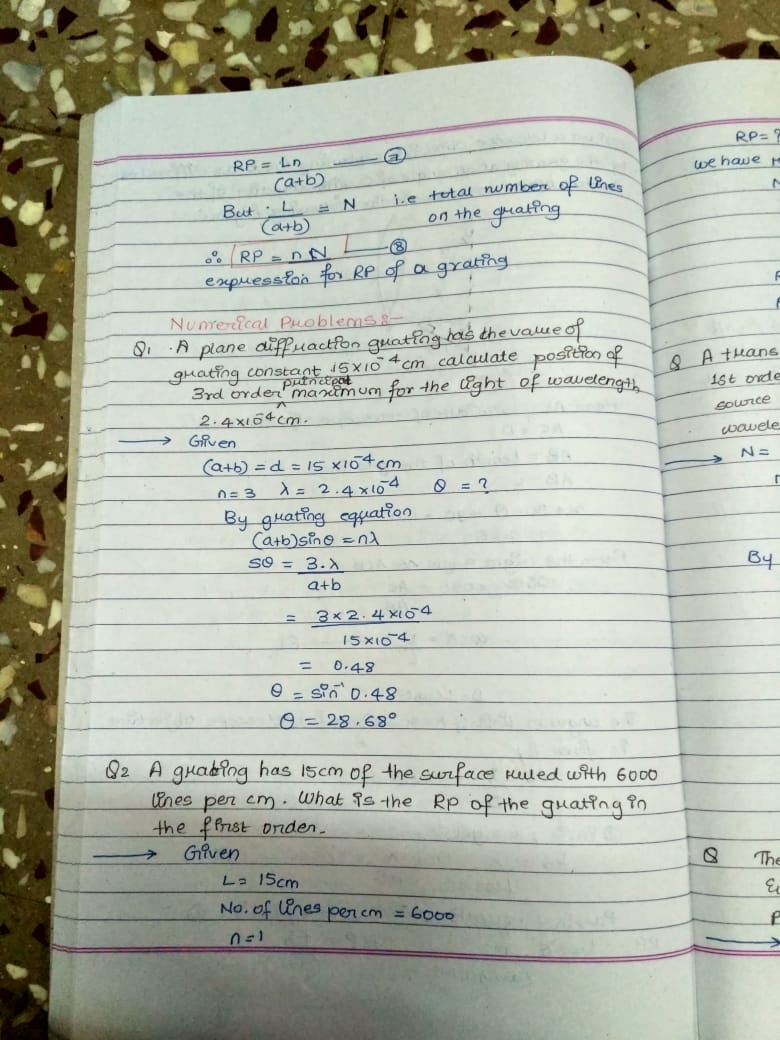 RP = Ln / (a+b) —— ⑦
But L / (a+b) = N i.e total number of lines
on the grating
∴ RP = nN —— ⑧
expression for RP of a grating
Numerical Problems :-
Q1 . A plane diffraction grating has the value of
grating constant 15×10⁻⁴cm calculate position of
3rd order principal maximum for the light of wavelength
2.4×10⁻⁴cm.
→ Given
(a+b) = d = 15 ×10⁻⁴cm
n=3 λ = 2.4×10⁻⁴ θ = ?
By grating equation
(a+b)sinθ = nλ
sθ = 3.λ / a+b
= 3×2.4×10⁻⁴ / 15×10⁻⁴
= 0.48
θ = sin⁻¹ 0.48
θ = 28.68°
Q2 A grating has 15cm of the surface ruled with 6000
lines per cm. What is the RP of the grating in
the first order.
→ Given
L = 15cm
No. of lines per cm = 6000
n=1
RP= ?
we have
Q A trans
1st orde
source
wavele
→ N =
By
Q The
→